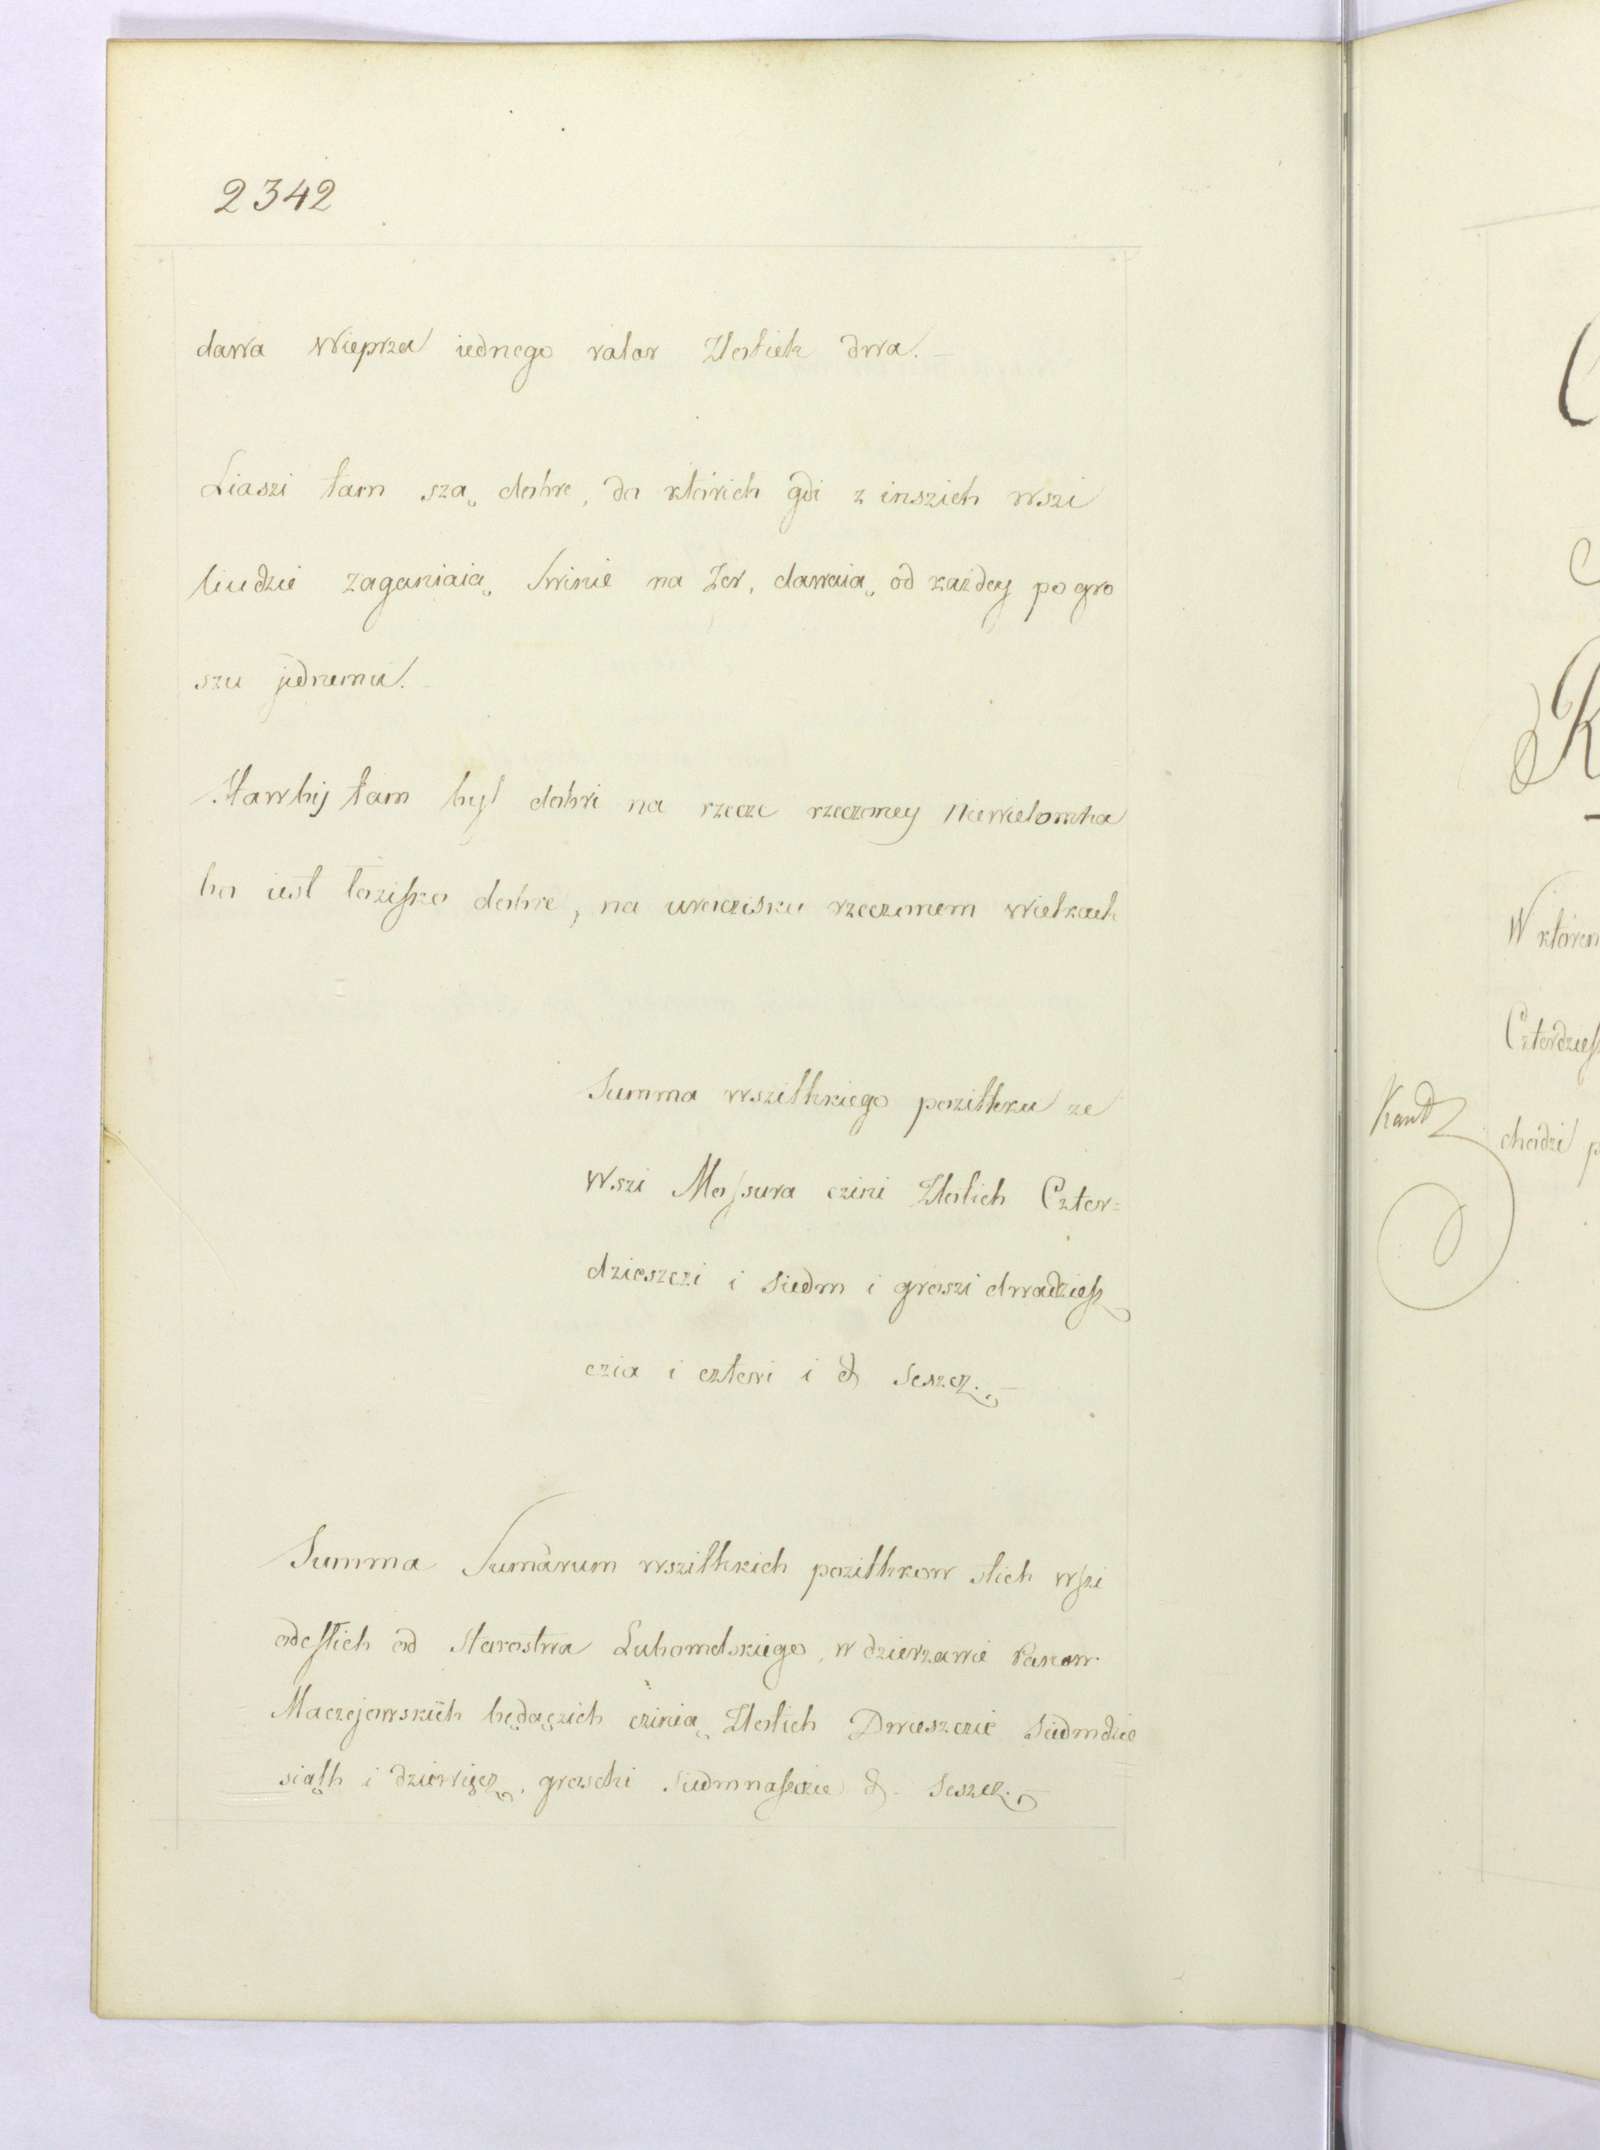 2342
dawa Wieprza iednego valor Złotich dwa.
Liaszi tam szą dobre, do ktorich gdi z inszich wszi
liudzie zaganiaią Swinie na Zer, dawaią od każdey po gro
szu jednemu.
Stawby tam byl dobri na rzecze rzeczoney
bo iest łozisko dobre, na uroczisku rzeczonem Wielkach
Summa wszithkiego pozithku ze
Wszi Mossura czini Złotich Czter=
dzieszczi i Siedm i groszi dwadziesz
czia i czteri i ₰ Seszcz.
Summa Sumarum wszithkich pozithkow stich wszi
odeszlich od Starostwa Lubomelskiego, w dzierzawie Panow
Maczejowskiich będączich czinią Złotich Dwieszczie Siedmdzie
siąth i dziewięcz, groschi Siedmnasczie ₰. Seszcz.
W ktorem
Czterdziesz
chodzi p